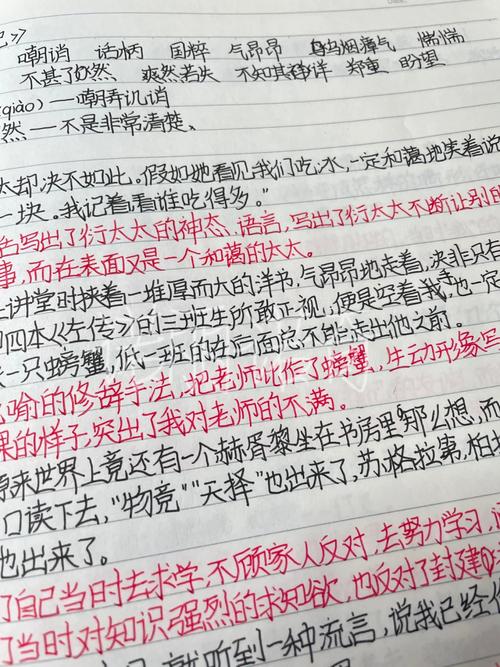 记》
嘲诮 话柄 国粹 气昂昂 乌烟瘴气 惴惴
不甚了然 爽然若失 不知其详 郑重 盼望
(qiào)——嘲弄讥诮
然——不是非常清楚、
太却决不如此。假如她看见我们吃冰,一定和蔼地笑着说
一块。我记着,看谁吃得多。"
写出了衍太太的神态、语言,写出了衍太太不断让别的
事,而在表面又是一个和蔼的太太。
上讲堂时挟着一堆厚而大的洋书,气昂昂地走着,决非只有
四本《左传》的三班生所敢正视,便是空着手,也一定
一只螃蟹,低一班的在后面总不能走出他之前。
喻的修辞手法,把老师比作了螃蟹,生动形象写
课的样子,突出了我对老师的不满。
原来世界上竟还有一个赫胥黎坐在书房里那么想,而
口读下去,"物竞""天择"也出来了,苏格拉第,柏拉
也出来了。
了自己当时去求学,不顾家人反对,去努力学习,
了当时对知识强烈的求知欲,也反对了封建
就听到一种流言,说我已经